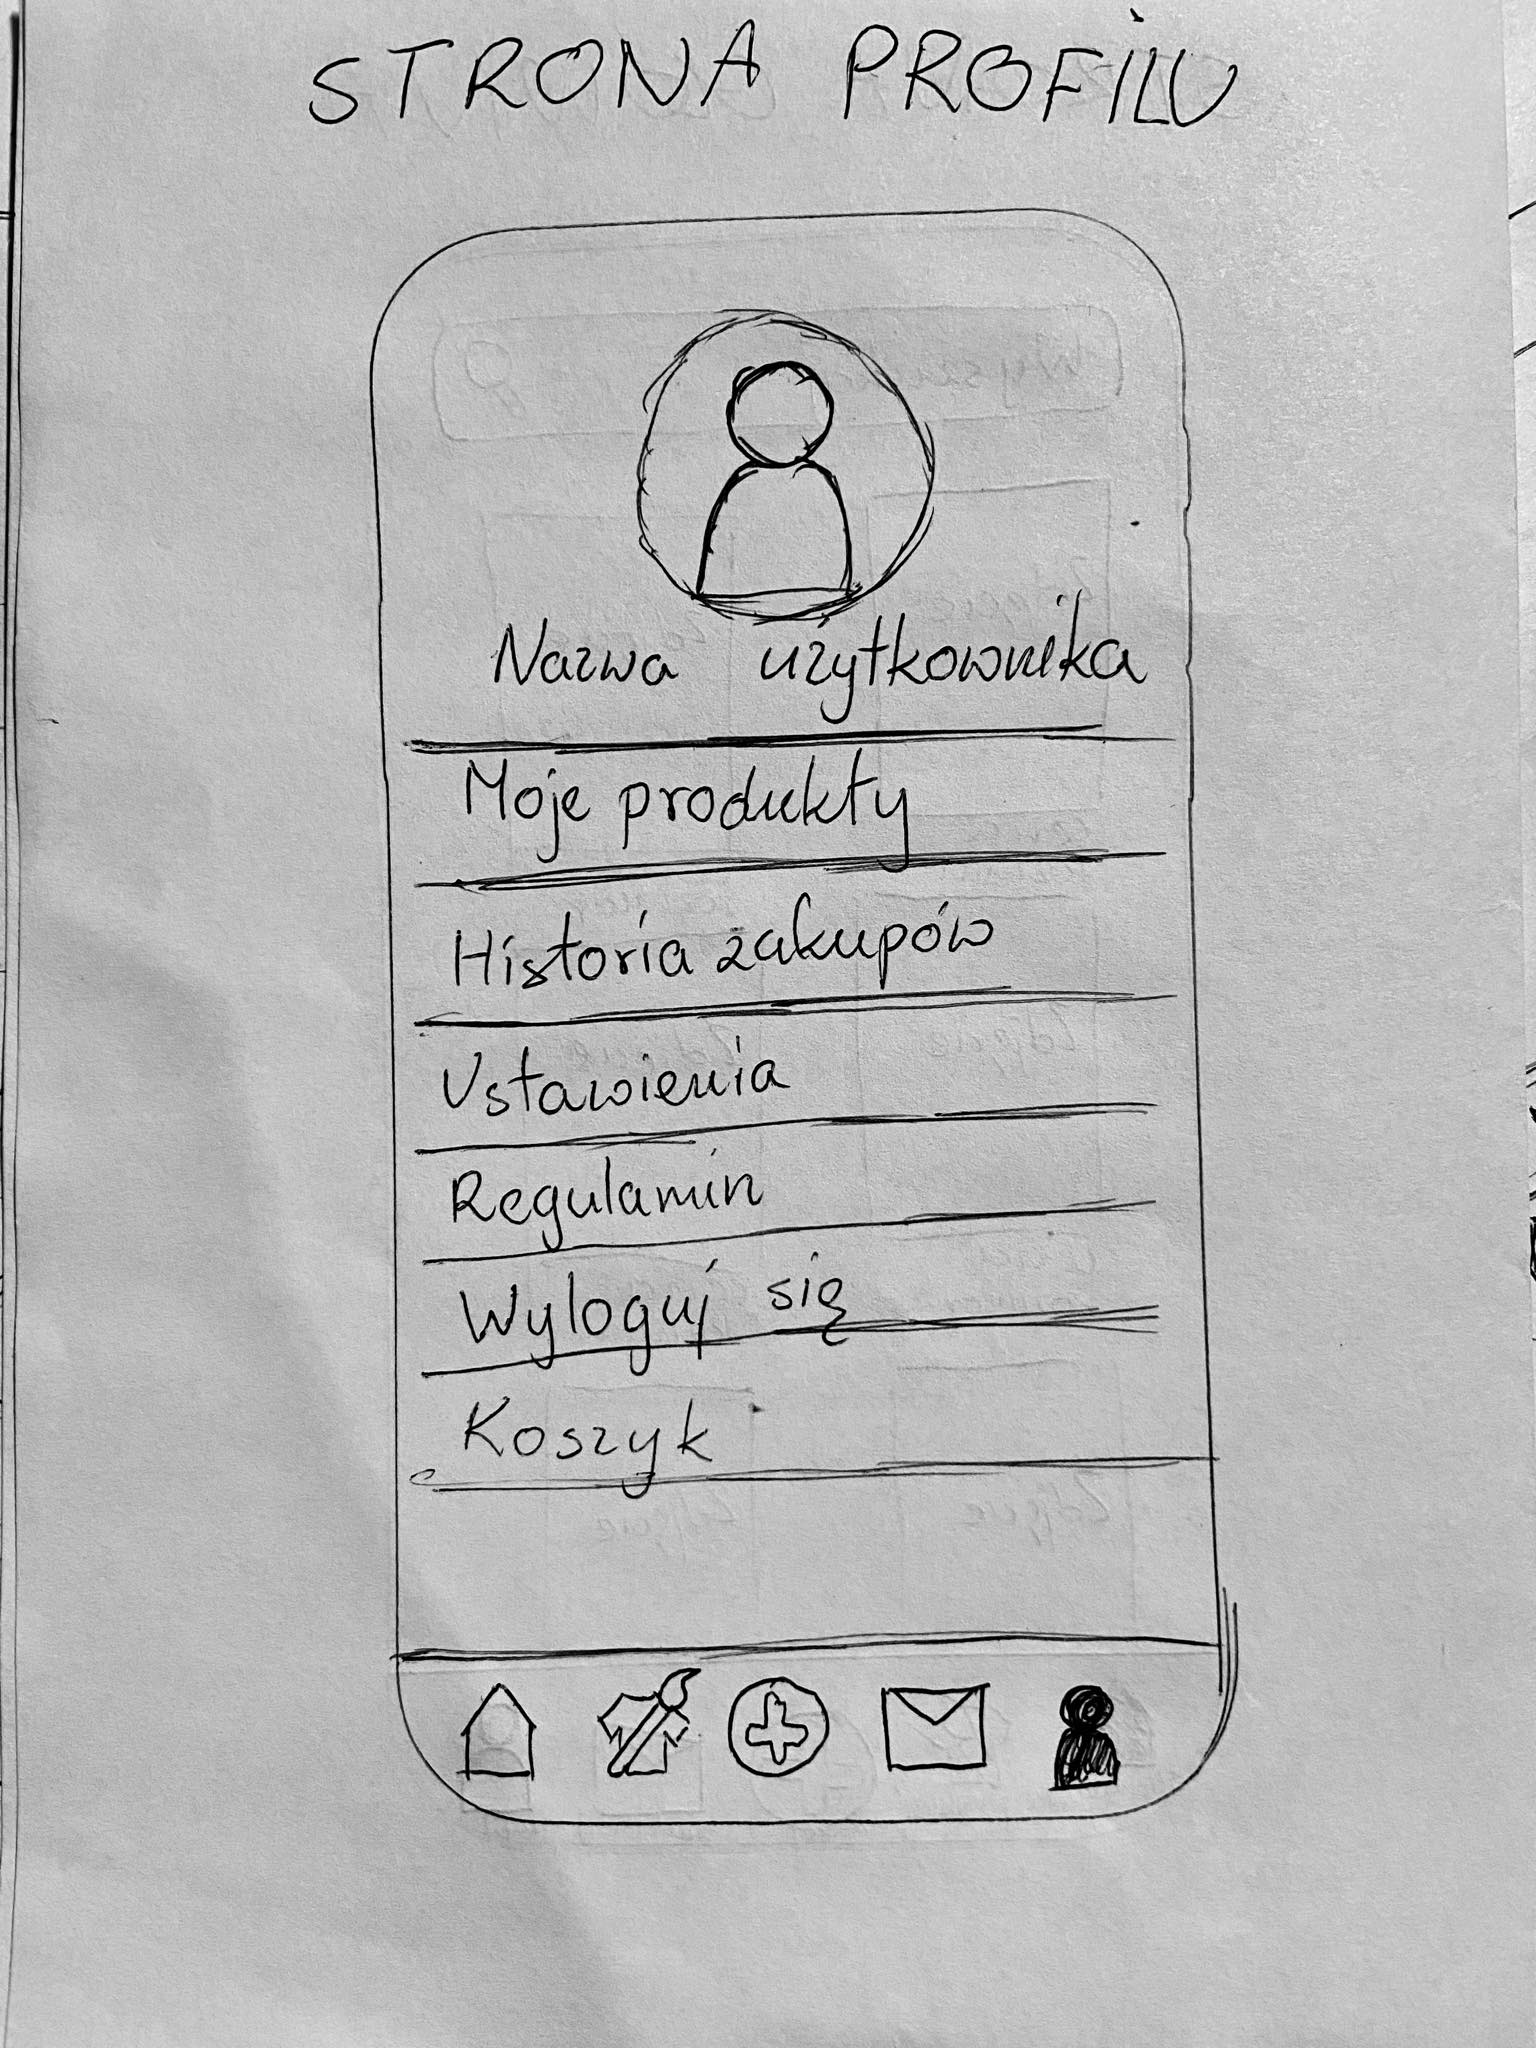 STRONA PROFILU
Nazwa użytkownika
Moje produkty
Historia zakupów
Ustawienia
Regulamin
Wyloguj się
Koszyk